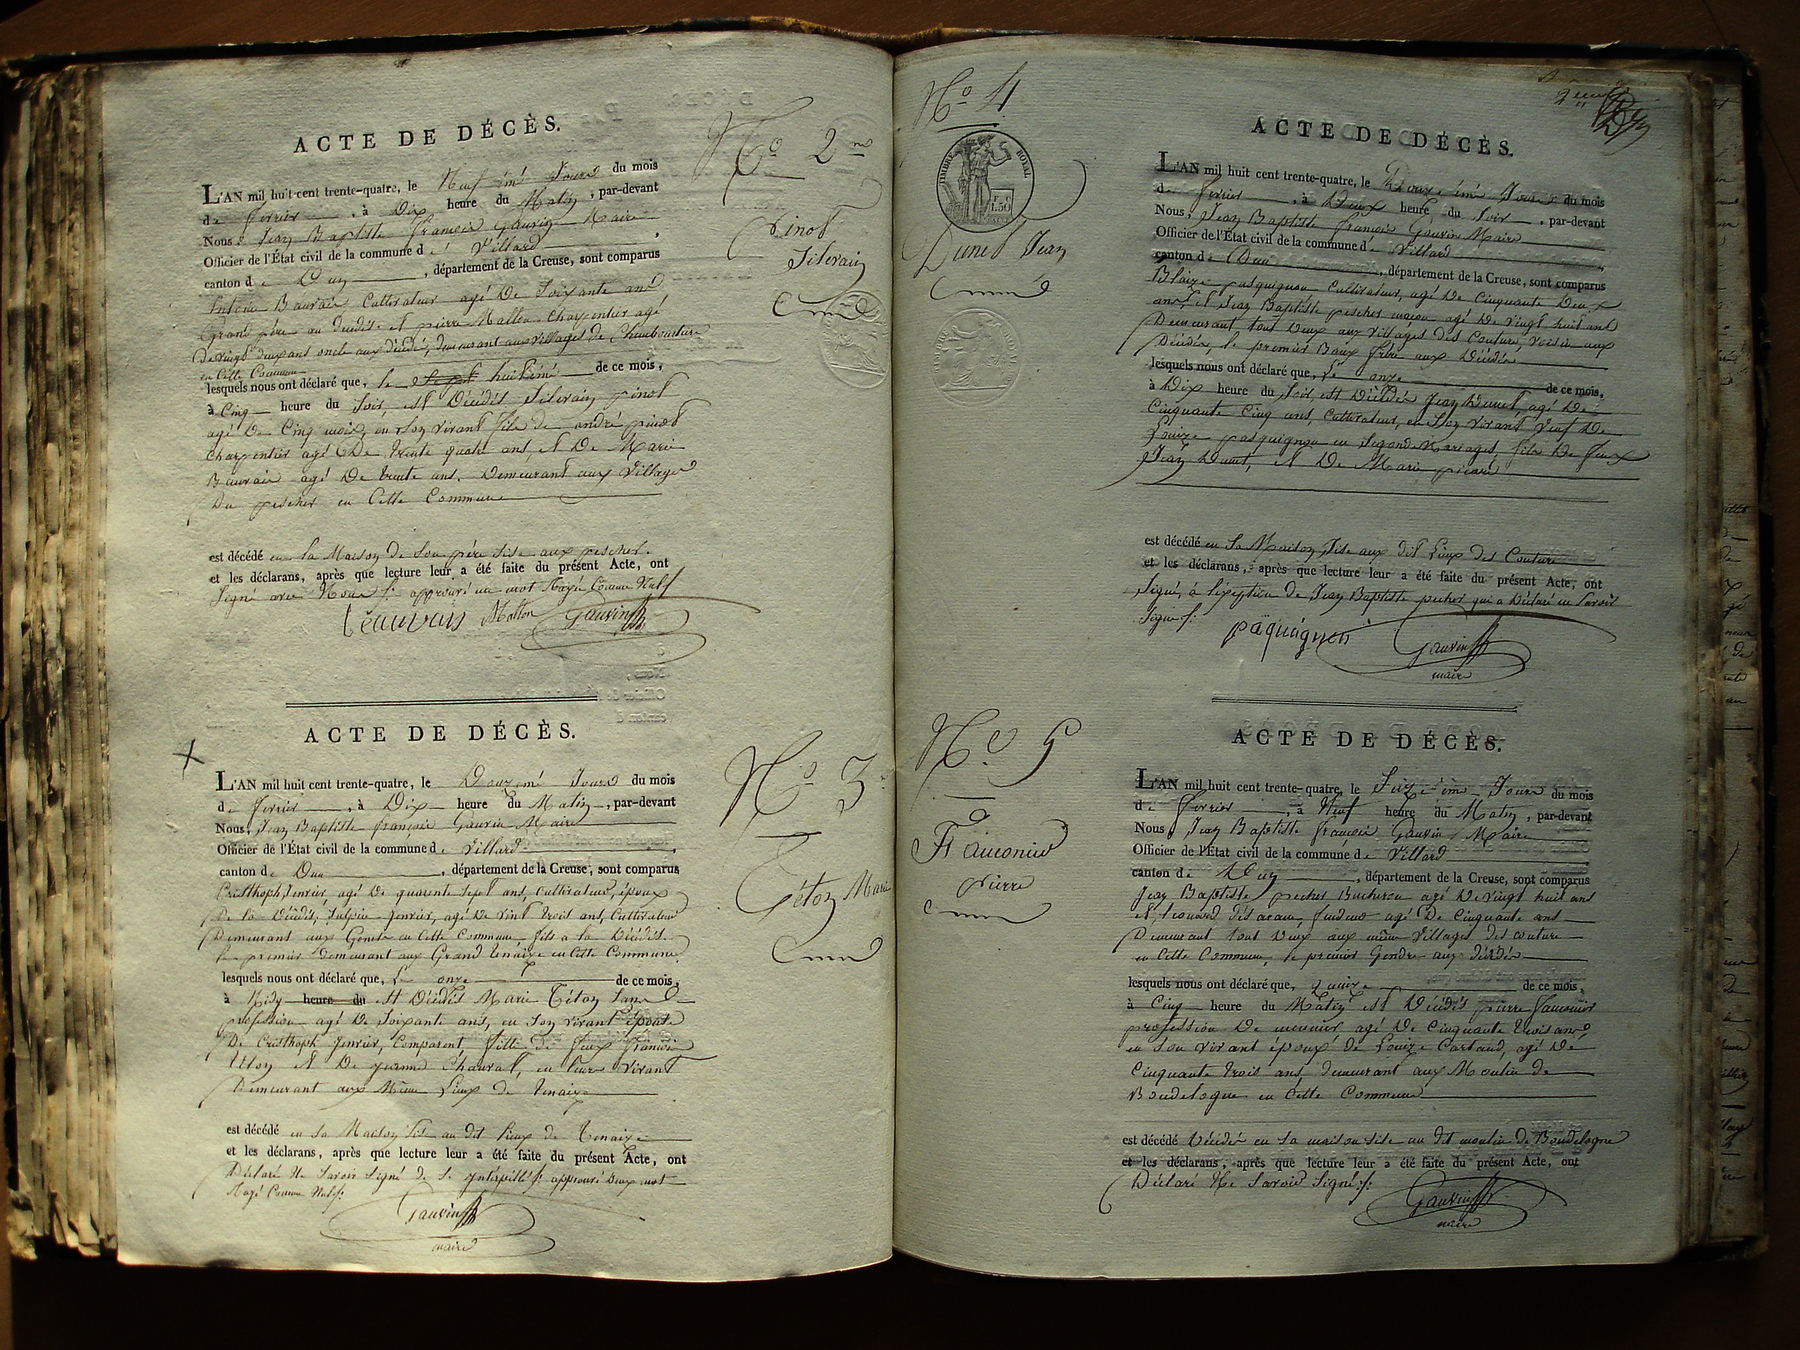 ACTE DE DÉCÈS.
L'AN mil huit cent trente-quatre, le Neuf ème Jour du mois
de fevrier, à Dix heure du Matin, par-devant
Nous, Jean Baptiste françois Gauvin Maire
Officier de l'État civil de la commune de Villard
canton de Dun, département de la Creuse, sont comparus
Beauvais Cultivateur agé De Soixante ans
Grand père au décédé et pierre Mallon Charpentier agé
De vingt deux ans oncle aux décédé, demeurant aux villages de
en Cette Commune
lesquels nous ont déclaré que, le huitième de ce mois,
à Cinq heure du Soir, est Décédé Silvain pinot
agé De Cinq mois, en Son vivant fils de andré pinot
Charpentier agé De trente quatre ans, et De Marie
Beauvais agé De trente ans. Demeurant aux Village
Du pescher en Cette Commune
est décédé en la Maison de Son père Sise aux pescher.
et les déclarans, après que lecture leur a été faite du présent Acte, ont
Signé avec Nous approuvé un mot Rayé Comme Nul
Beauvais Mallon Gauvin
N° 2
pinot
Silvain
ACTE DE DÉCÈS.
L'AN mil huit cent trente-quatre, le Douzème Jour du mois
de fevrier, à Dix heure du Matin, par-devant
Nous, Jean Baptiste françois Gauvin Maire
Officier de l'État civil de la commune de Villard
canton de Dun, département de la Creuse, sont comparus
agé De quarente Sept ans, Cultivateur, époux
De la Décédé, agé De vint trois ans, Cultivateur
Demeurant aux en Cette Commune fils a la Décédé.
le premier demeurant aux Grand Tenaize en Cette Commune
lesquels nous ont déclaré que, Le onze de ce mois,
à Midy heure du est Décédé Marie Téton Sans
profession agé De Soixante ans, en Son vivant épouse
De Comparent fille de feux françois
Téton et De jeanne Chauvat, en leur vivant
Demeurant aux Même Lieux de Tenaize
est décédé en Sa Maison Sise au dit lieux de Tenaize
et les déclarans, après que lecture leur a été faite du présent Acte, ont
Déclaré Ne Savoir Signé De Ce approuvé Deux mot
Rayé Comme Nul
Gauvin
maire
N° 3
Téton Marie
N° 4
TIMBRE ROYAL
Dunet Jean
ACTE DE DÉCÈS.
L'AN mil huit cent trente-quatre, le Douze ème Jour du mois
de fevrier, à Deux heure du Soir, par-devant
Nous, Jean Baptiste françois Gauvin Maire
Officier de l'État civil de la commune de Villard
canton de Dun, département de la Creuse, sont comparus
Blaize pasquignon Cultivateur, agé De Cinquante Deux
ans, et Jean Baptiste pescher maçon agé De vingt huit ans
Demeurant tout Deux aux villages des Couture, voisin aux
Décédés, le premier Beaux frère aux Décédés
lesquels nous ont déclaré que, Le onze de ce mois,
à Dix heure du Soir, est Décédés Jean Dunet, agé De
Cinquante Cinq ans, Cultivateur, en Son vivant Veuf De
Louize pasquignon en Segond Mariages, fils De feux
Jean Dunet, et De Marie picaud
est décédé en Sa Maison Sise aux dit Lieux des Couture
et les déclarans, après que lecture leur a été faite du présent Acte, ont
Signé, à l'exeption de Jean Baptiste pecher qui a Déclaré ne Savoir
Signé
paquignon Gauvin
maire
N° 5
Fauconier
pierre
ACTE DE DÉCÈS.
L'AN mil huit cent trente-quatre, le Seize ème Jour du mois
de fevrier, à Neuf heure du Matin, par-devant
Nous, Jean Baptiste françois Gauvin Maire
Officier de l'État civil de la commune de Villard
canton de Dun, département de la Creuse, sont comparus
Jean Baptiste pecher Bucheron agé De vingt huit ans
et Léonard agé De Cinquante ans
Demeurant tout Deux aux même Villages des couture
en Cette Commune, le premier Gendre aux décédés
lesquels nous ont déclaré que, quinze de ce mois,
à Cinq heure du Matin est Décédés pierre fauconier
profession De meunier agé De Cinquante trois ans
en Son vivant époux de Louize Cartaud, agé De
Cinquante trois ans, demeurant aux Moulin de
Boudelogne en Cette Commune
est décédé Décédés en Sa maison Sise au dit moulin de Boudelogne
et les déclarans, après que lecture leur a été faite du présent Acte, ont
Déclaré Ne Savoir Signé
Gauvin
maire